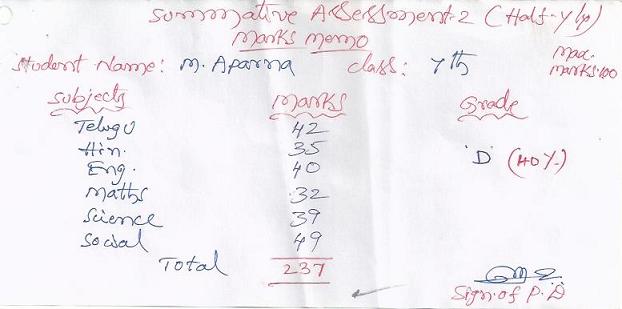 Summative Assessment-2 (Half-yly)
Marks Memo
Student Name: M. Aparna Class: 7th Max. Marks:100
Subjects Marks Grade
Telugu 42
Hin. 35
Eng. 40 'D' (40%)
Maths 32
Science 39
Social 49
Total 237
Sign.of P.D